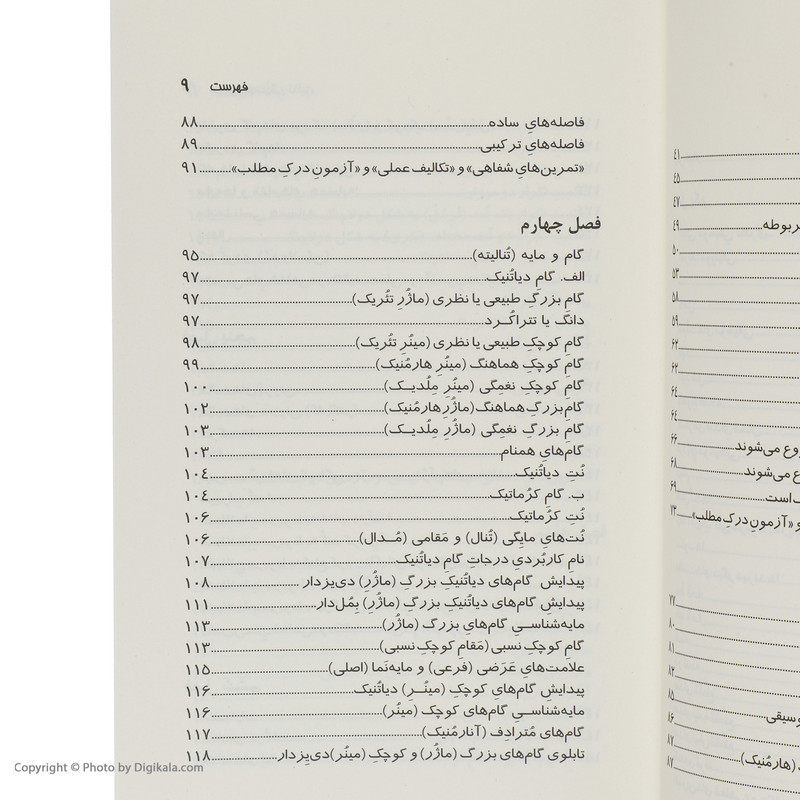 فهرست ۹
فاصله‌هایِ ساده ۸۸
فاصله‌هایِ ترکیبی ۸۹
«تمرین‌هایِ شفاهی» و «تکالیف عملی» و «آزمونِ درکِ مطلب» ۹۱
فصل چهارم
گام و مایه (تُنالیته) ۹۵
الف. گامِ دیاتُنیک ۹۷
گامِ بزرگِ طبیعی یا نظری (ماژُرِ تئُریک) ۹۷
دانگ یا تتراکُرد ۹۷
گامِ کوچکِ طبیعی یا نظری (مینُرِ تئُریک) ۹۸
گامِ کوچکِ هماهنگ (مینُرِ هارمُنیک) ۹۹
گامِ کوچکِ نغمِگی (مینُرِ مِلُدیک) ۱۰۰
گامِ بزرگِ هماهنگ (ماژُرِ هارمُنیک) ۱۰۲
گامِ بزرگِ نغمِگی (ماژُرِ مِلُدیک) ۱۰۳
گام‌هایِ همنام ۱۰۳
نُتِ دیاتُنیک ۱۰۴
ب. گامِ کرُماتیک ۱۰۴
نُتِ کرُماتیک ۱۰۶
نُت‌هایِ مایِگی (تُنال) و مَقامی (مُدال) ۱۰۶
نام کاربُردیِ درجاتِ گامِ دیاتُنیک ۱۰۷
پیدایش گام‌هایِ دیاتُنیکِ بزرگ (ماژُر) دی‌یِزدار ۱۰۸
پیدایش گام‌هایِ دیاتُنیکِ بزرگ (ماژُر) بِمُل‌دار ۱۱۱
مایه‌شناسیِ گام‌هایِ بزرگ (ماژُر) ۱۱۳
گام کوچکِ نسبی (مَقامِ کوچکِ نسبی) ۱۱۳
علامت‌هایِ عَرَضی (فرعی) و مایه‌نَما (اصلی) ۱۱۵
پیدایش گام‌هایِ کوچکِ (مینُر) دیاتُنیک ۱۱۶
مایه‌شناسیِ گام‌هایِ کوچک (مینُر) ۱۱۶
گام‌هایِ مُترادِف (آنارمُنیک) ۱۱۷
تابلوی گام‌هایِ بزرگ (ماژُر) و کوچکِ (مینُر) دی‌یِزدار ۱۱۸
۴۱
۴۵
۴۷
ربوطه ۴۹
۵۰
۵۳
۵۸
۵۹
۶۲
۶۲
۶۴
۶۴
وع می‌شوند ۶۶
ع می‌شوند ۶۸
است ۶۹
و «آزمونِ درکِ مطلب» ۷۳
۷۷
۸۰
۸۱
۸۲
۸۵
وسیقی ۸۶
۸۷
(هارمُنیک) ۸۷
Copyright © Photo by Digikala.com